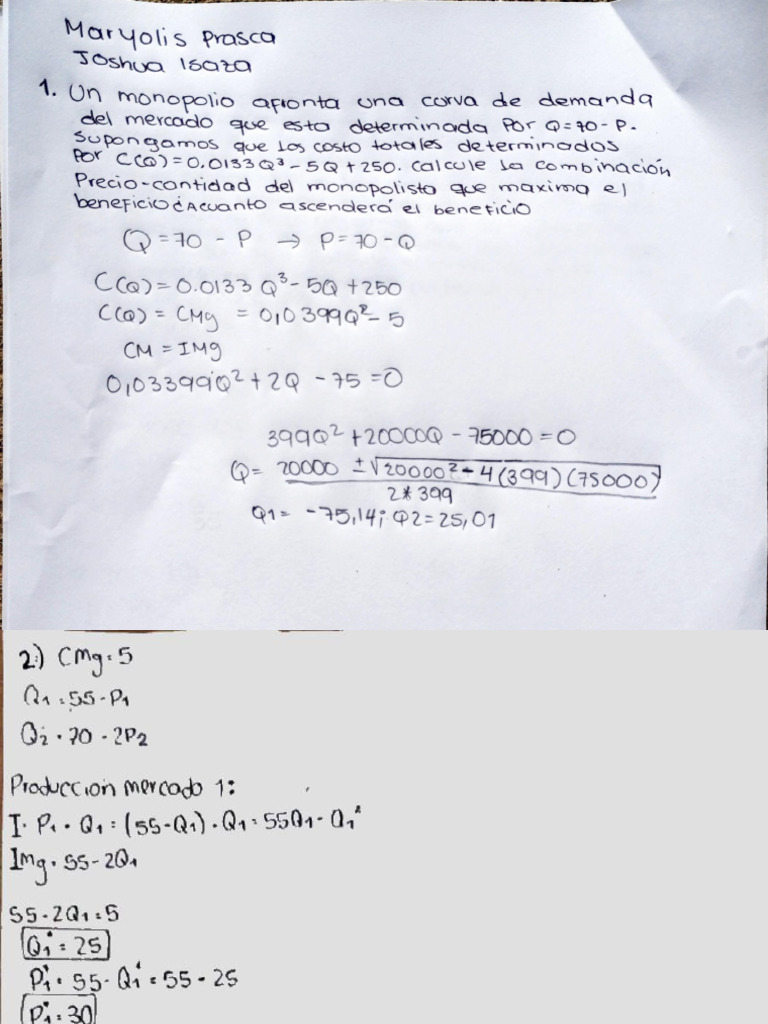 Maryolis Prasca
Joshua Isaza
1. Un monopolio afronta una curva de demanda
del mercado que esta determinada Por Q=70-P.
Supongamos que los costo totales determinados
Por C(Q)=0.0133Q³-5Q+250. Calcule la combinación
Precio-cantidad del monopolista que maxima el
beneficio ¿Acuanto ascenderá el beneficio
Q=70-P → P=70-Q
C(Q)=0.0133Q³-5Q+250
C(Q)=CMg =0,0399Q²-5
CM=IMg
0,03399Q²+2Q-75=0
399Q²+20000Q-75000=0
Q= 20000 ±√20000²-4(399)(75000)
2*399
Q1= -75,14; Q2=25,01
2) CMg=5
Q1=55-P1
Q2=70-2P2
Produccion mercado 1:
I=P1·Q1=(55-Q1)·Q1=55Q1-Q1²
Img=55-2Q1
55-2Q1=5
Q1*=25
P1*=55-Q1*=55-25
P1*=30